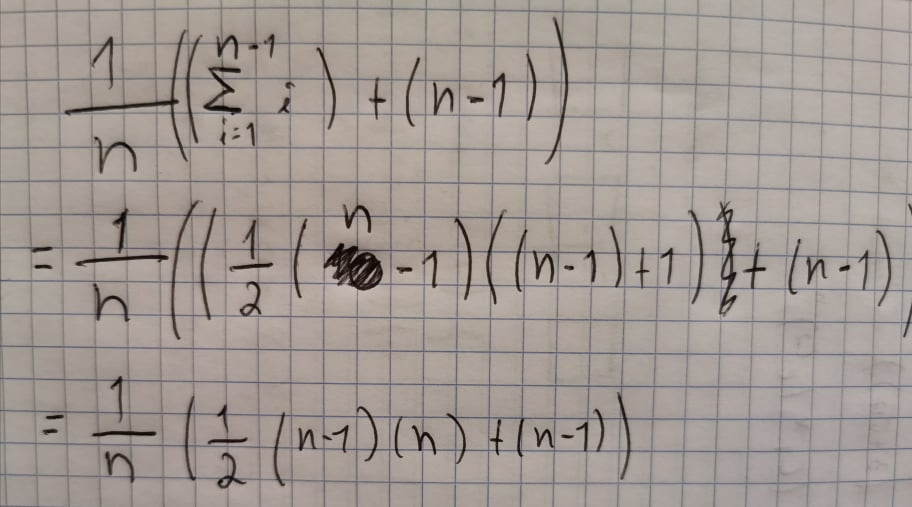 \frac{1}{n}\left(\left(\sum_{i=1}^{n-1} i\right) + (n-1)\right)
= \frac{1}{n}\left(\left(\frac{1}{2}(n-1)((n-1)+1) + (n-1)\right)
= \frac{1}{n}\left(\frac{1}{2}(n-1)(n) + (n-1)\right)